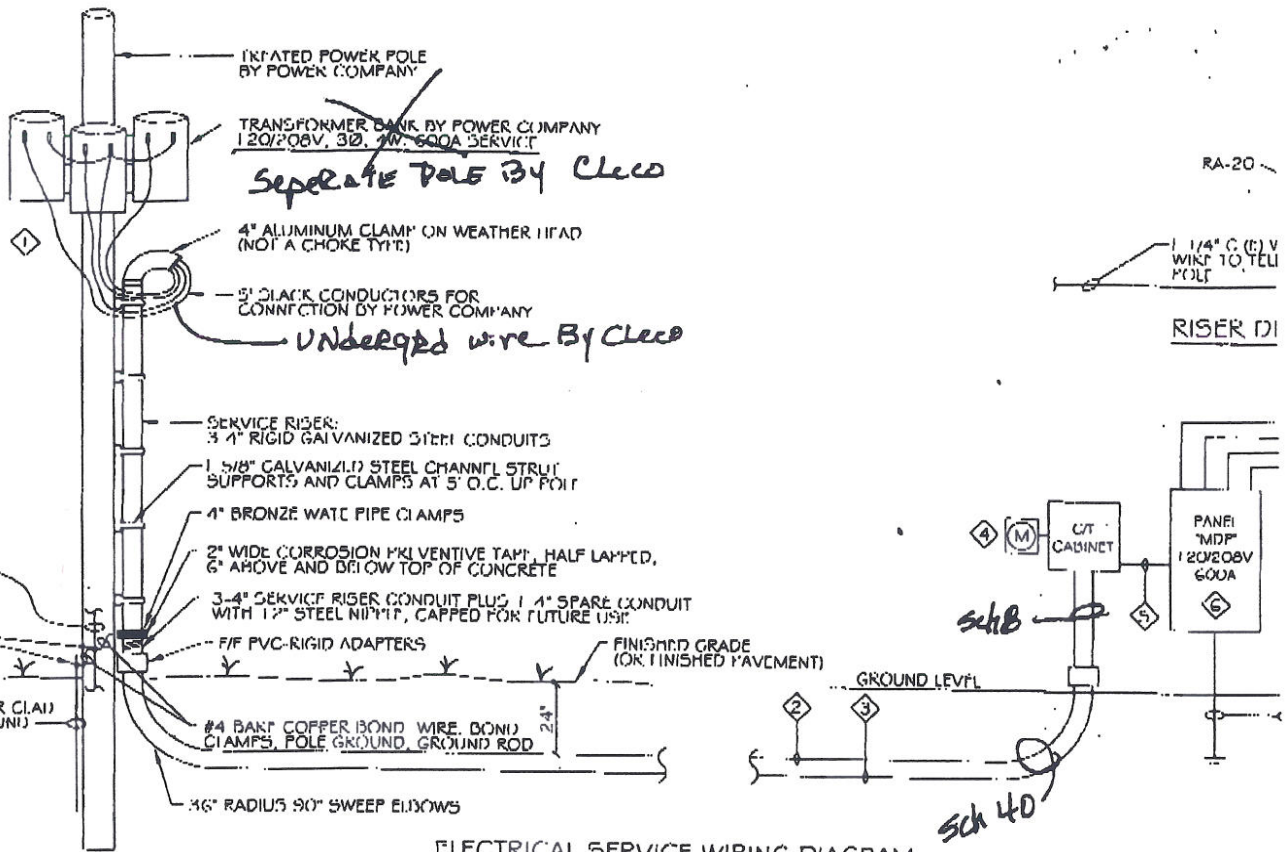 TREATED POWER POLE
BY POWER COMPANY
TRANSFORMER BANK BY POWER COMPANY
120/208V, 3Ø, 4W, 600A SERVICE
SepeRATE POLE By Cleco
1
4" ALUMINUM CLAMP ON WEATHER HEAD
(NOT A CHOKE TYPE)
5' SLACK CONDUCTORS FOR
CONNECTION BY POWER COMPANY
UNdeRgRd wire By Cleco
SERVICE RISER:
3 4" RIGID GALVANIZED STEEL CONDUITS
1 5/8" GALVANIZED STEEL CHANNEL STRUT
SUPPORTS AND CLAMPS AT 5' O.C. UP POLE
4" BRONZE WATE PIPE CLAMPS
2" WIDE CORROSION PREVENTIVE TAPE, HALF LAPPED,
6" ABOVE AND BELOW TOP OF CONCRETE
3-4" SERVICE RISER CONDUIT PLUS 1 4" SPARE CONDUIT
WITH 12" STEEL NIPPLE, CAPPED FOR FUTURE USE
F/F PVC-RIGID ADAPTERS
FINISHED GRADE
(OR FINISHED PAVEMENT)
24"
#4 BARE COPPER BOND WIRE, BOND
CLAMPS, POLE GROUND, GROUND ROD
36" RADIUS 90° SWEEP ELBOWS
R CLAD
UND)
RA-20
1 1/4" C (E) W
WIRE TO TELE
POLE
RISER DI
4
M
C/T
CABINET
5
PANEL
"MDP"
120/208V
600A
6
sch 8
GROUND LEVEL
2
3
sch 40
ELECTRICAL SERVICE WIRING DIAGRAM